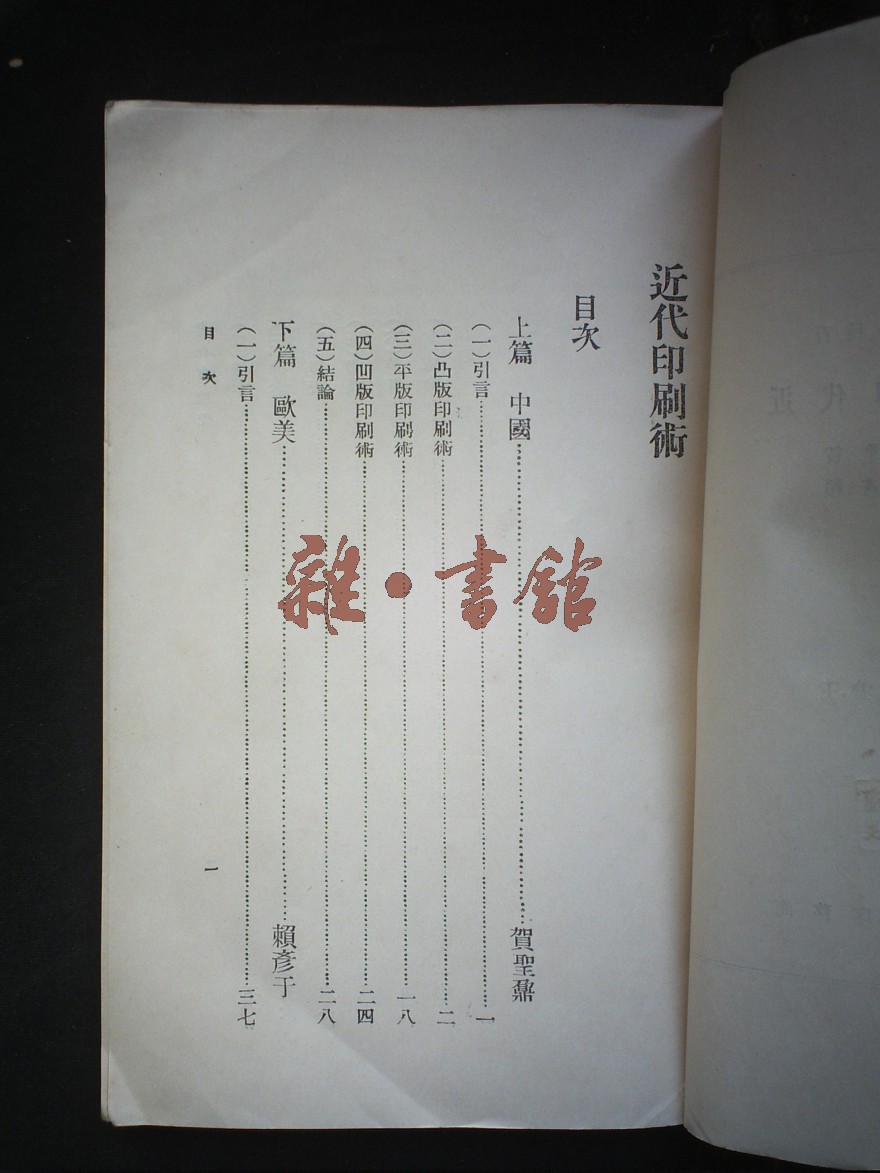 近代印刷術
目次
上篇 中國……賀聖鼐
（一）引言……一
（二）凸版印刷術……二
（三）平版印刷術……一八
（四）凹版印刷術……二四
（五）結論……二八
下篇 歐美……賴彥于
（一）引言……三七
目次 一
雜·書館